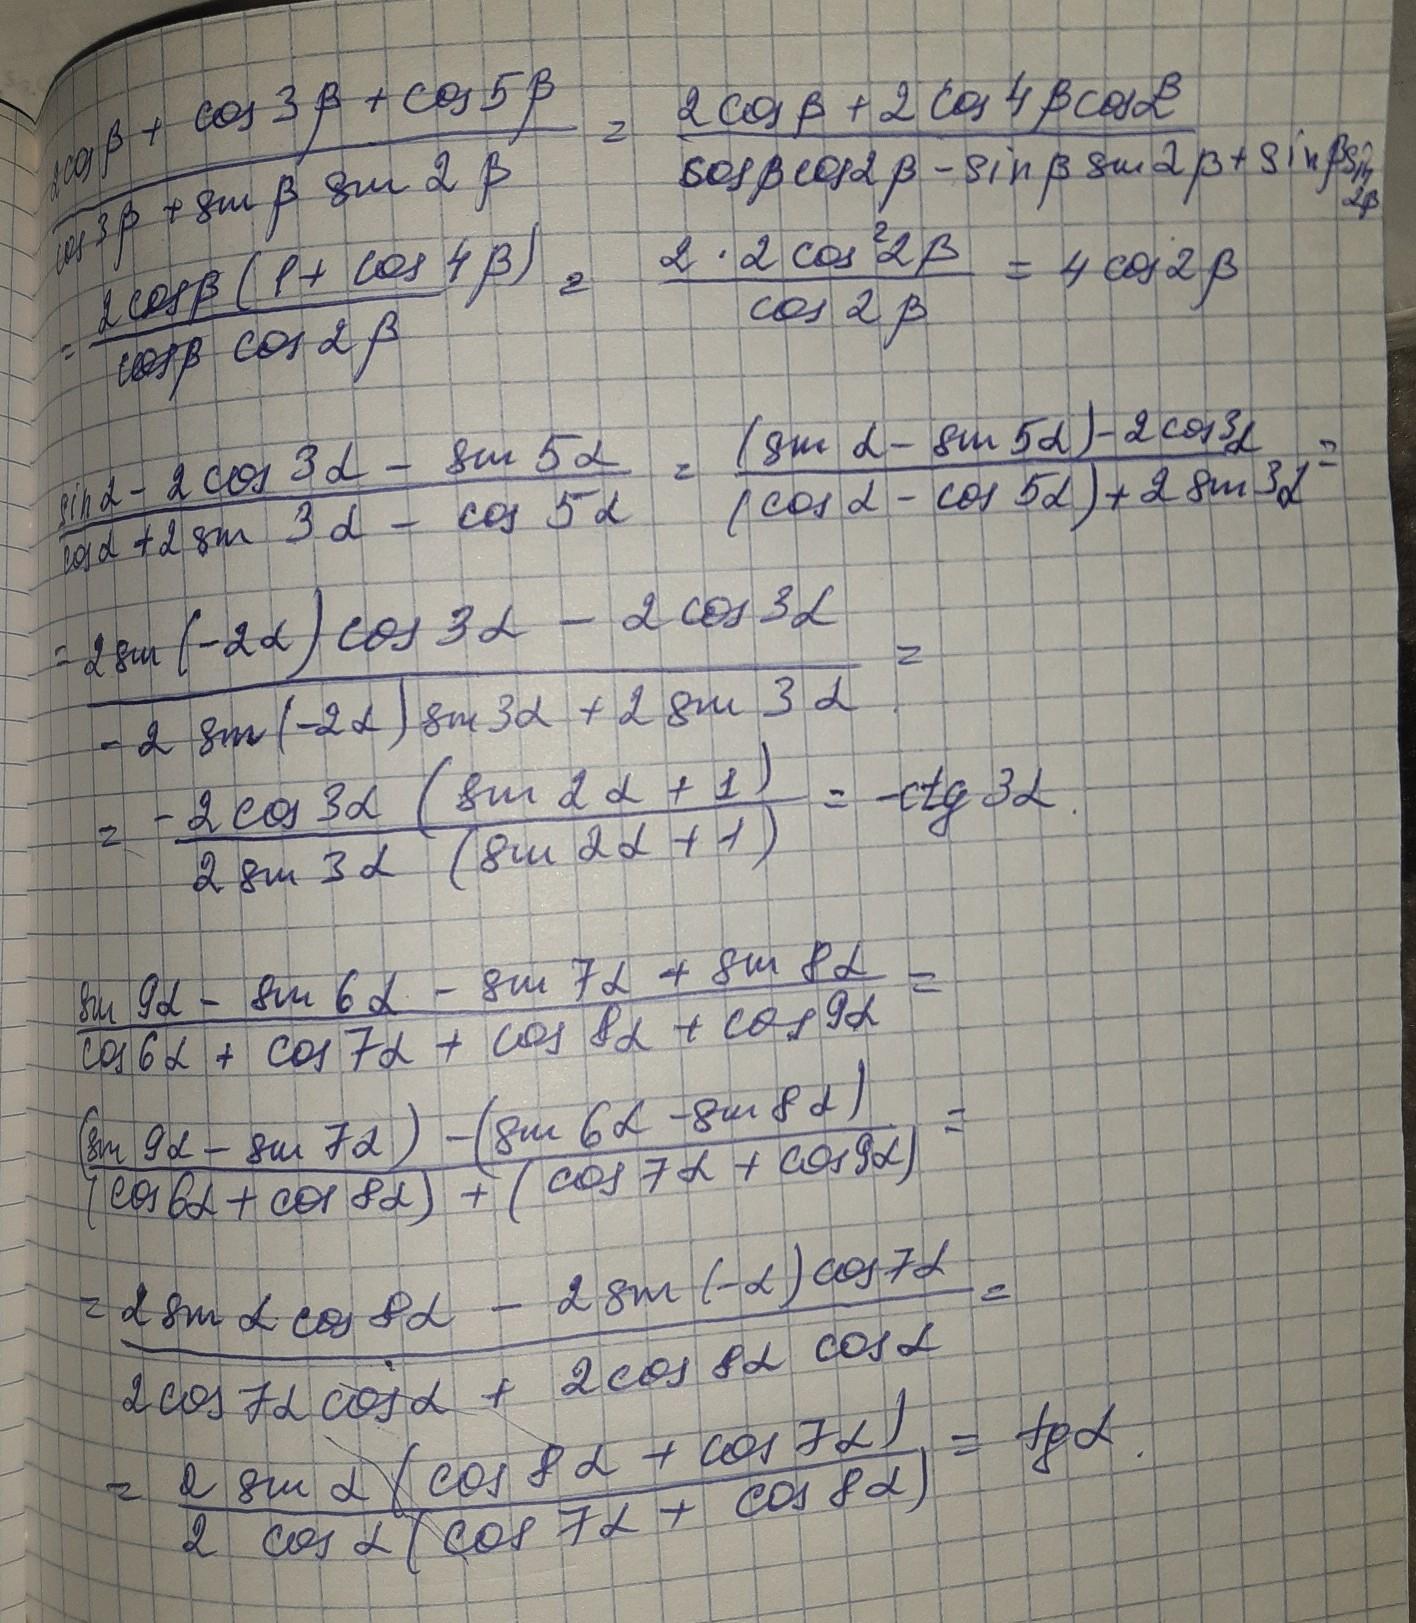 (2cosβ + cos3β + cos5β)/(cos3β + sinβ sin2β) = (2cosβ + 2cos4βcosβ)/(cosβcos2β - sinβ sin2β + sinβ sin2β)
= (2cosβ(1 + cos4β))/(cosβ cos2β) = (2·2cos²2β)/(cos2β) = 4cos2β
(sinα - 2cos3α - sin5α)/(cosα + 2sin3α - cos5α) = ((sinα - sin5α) - 2cos3α)/((cosα - cos5α) + 2sin3α) =
= (2sin(-2α)cos3α - 2cos3α)/(-2sin(-2α)sin3α + 2sin3α) =
= (-2cos3α(sin2α + 1))/(2sin3α(sin2α + 1)) = -ctg3α.
(sin9α - sin6α - sin7α + sin8α)/(cos6α + cos7α + cos8α + cos9α) =
((sin9α - sin7α) - (sin6α - sin8α))/((cos6α + cos8α) + (cos7α + cos9α)) =
= (2sinαcos8α - 2sin(-α)cos7α)/(2cos7αcosα + 2cos8αcosα) =
= (2sinα(cos8α + cos7α))/(2cosα(cos7α + cos8α)) = tgα.